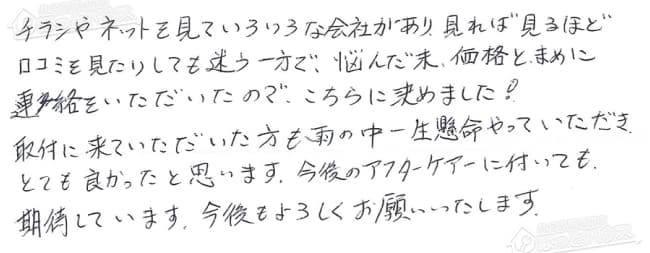 チラシやネットを見ていろいろな会社があり、見れば見るほど
口コミを見たりしても迷う一方で、悩んだ末、価格と、まめに
連絡をいただいたので、こちらに決めました!
取付に来ていただいた方も雨の中一生懸命やっていただき、
とても良かったと思います。今後のアフターケアーに付いても、
期待しています。今後もよろしくお願いいたします。